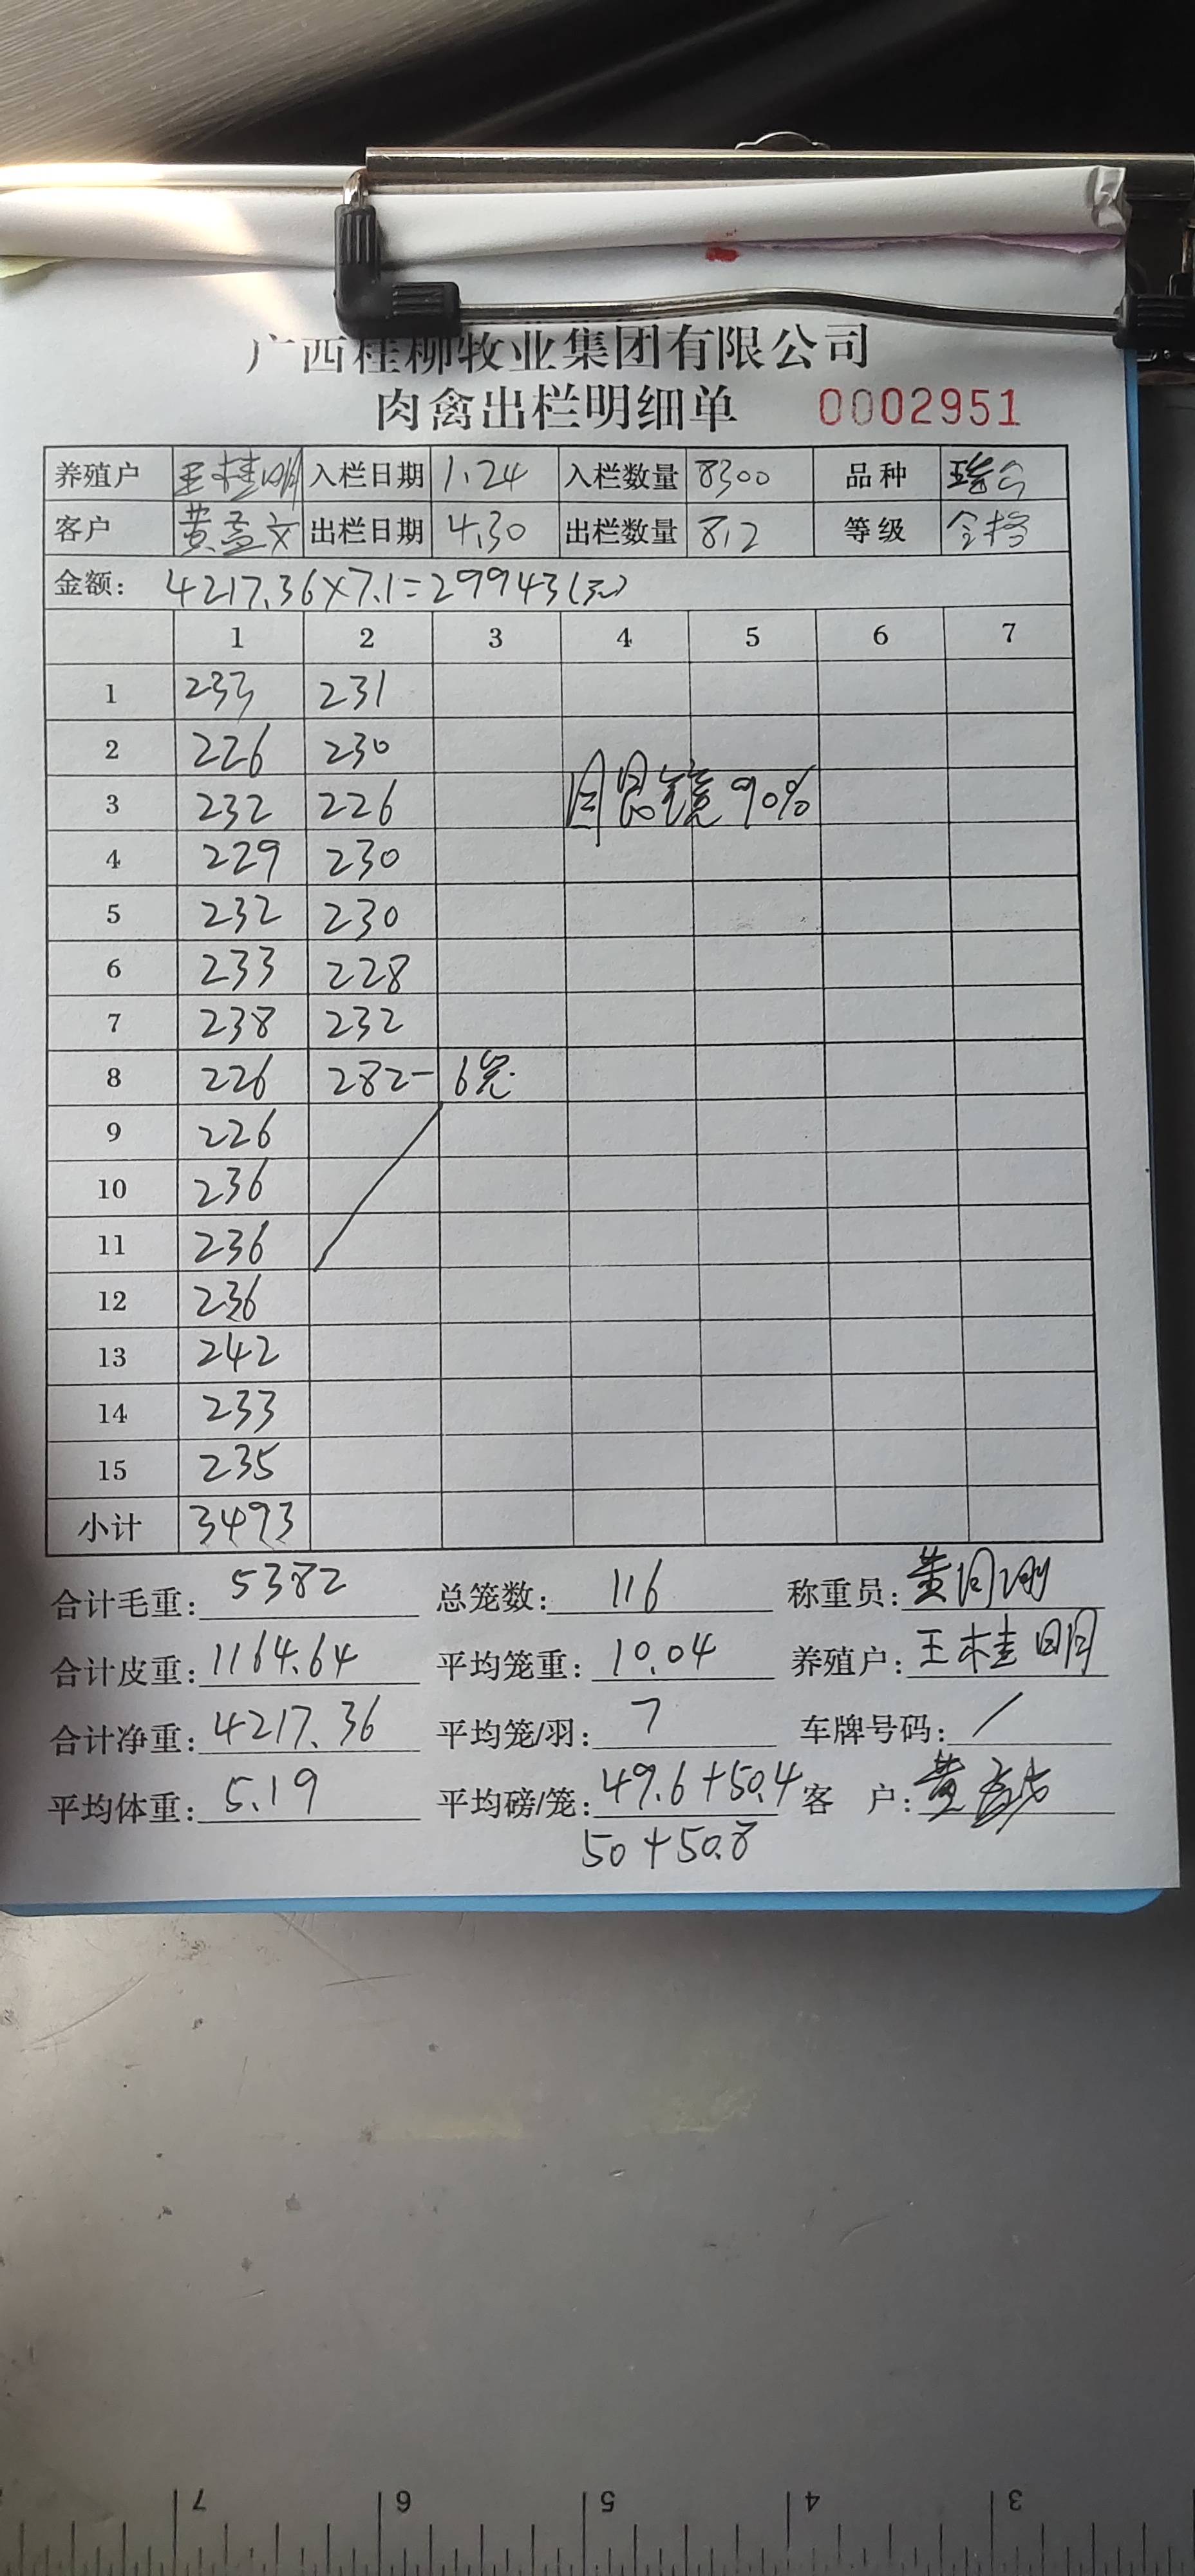 广西桂柳牧业集团有限公司
肉禽出栏明细单 0002951
养殖户 王桂明 入栏日期 1.24 入栏数量 8300 品种
客户 黄孟文 出栏日期 4.30 出栏数量 812 等级 合格
金额: 4217.36×7.1=29943(元)
1 2 3 4 5 6 7
1 233 231
2 226 230
3 232 226 眼镜90%
4 229 230
5 232 230
6 233 228
7 238 232
8 226 282- 6笼.
9 226
10 236
11 236
12 236
13 242
14 233
15 235
小计 3493
合计毛重: 5382 总笼数: 116 称重员:
合计皮重: 1164.64 平均笼重: 10.04 养殖户: 王桂明
合计净重: 4217.36 平均笼/羽: 7 车牌号码: /
平均体重: 5.19 平均磅/笼: 49.6+50.4 客 户:
50+50.8
7 6 5 4 3